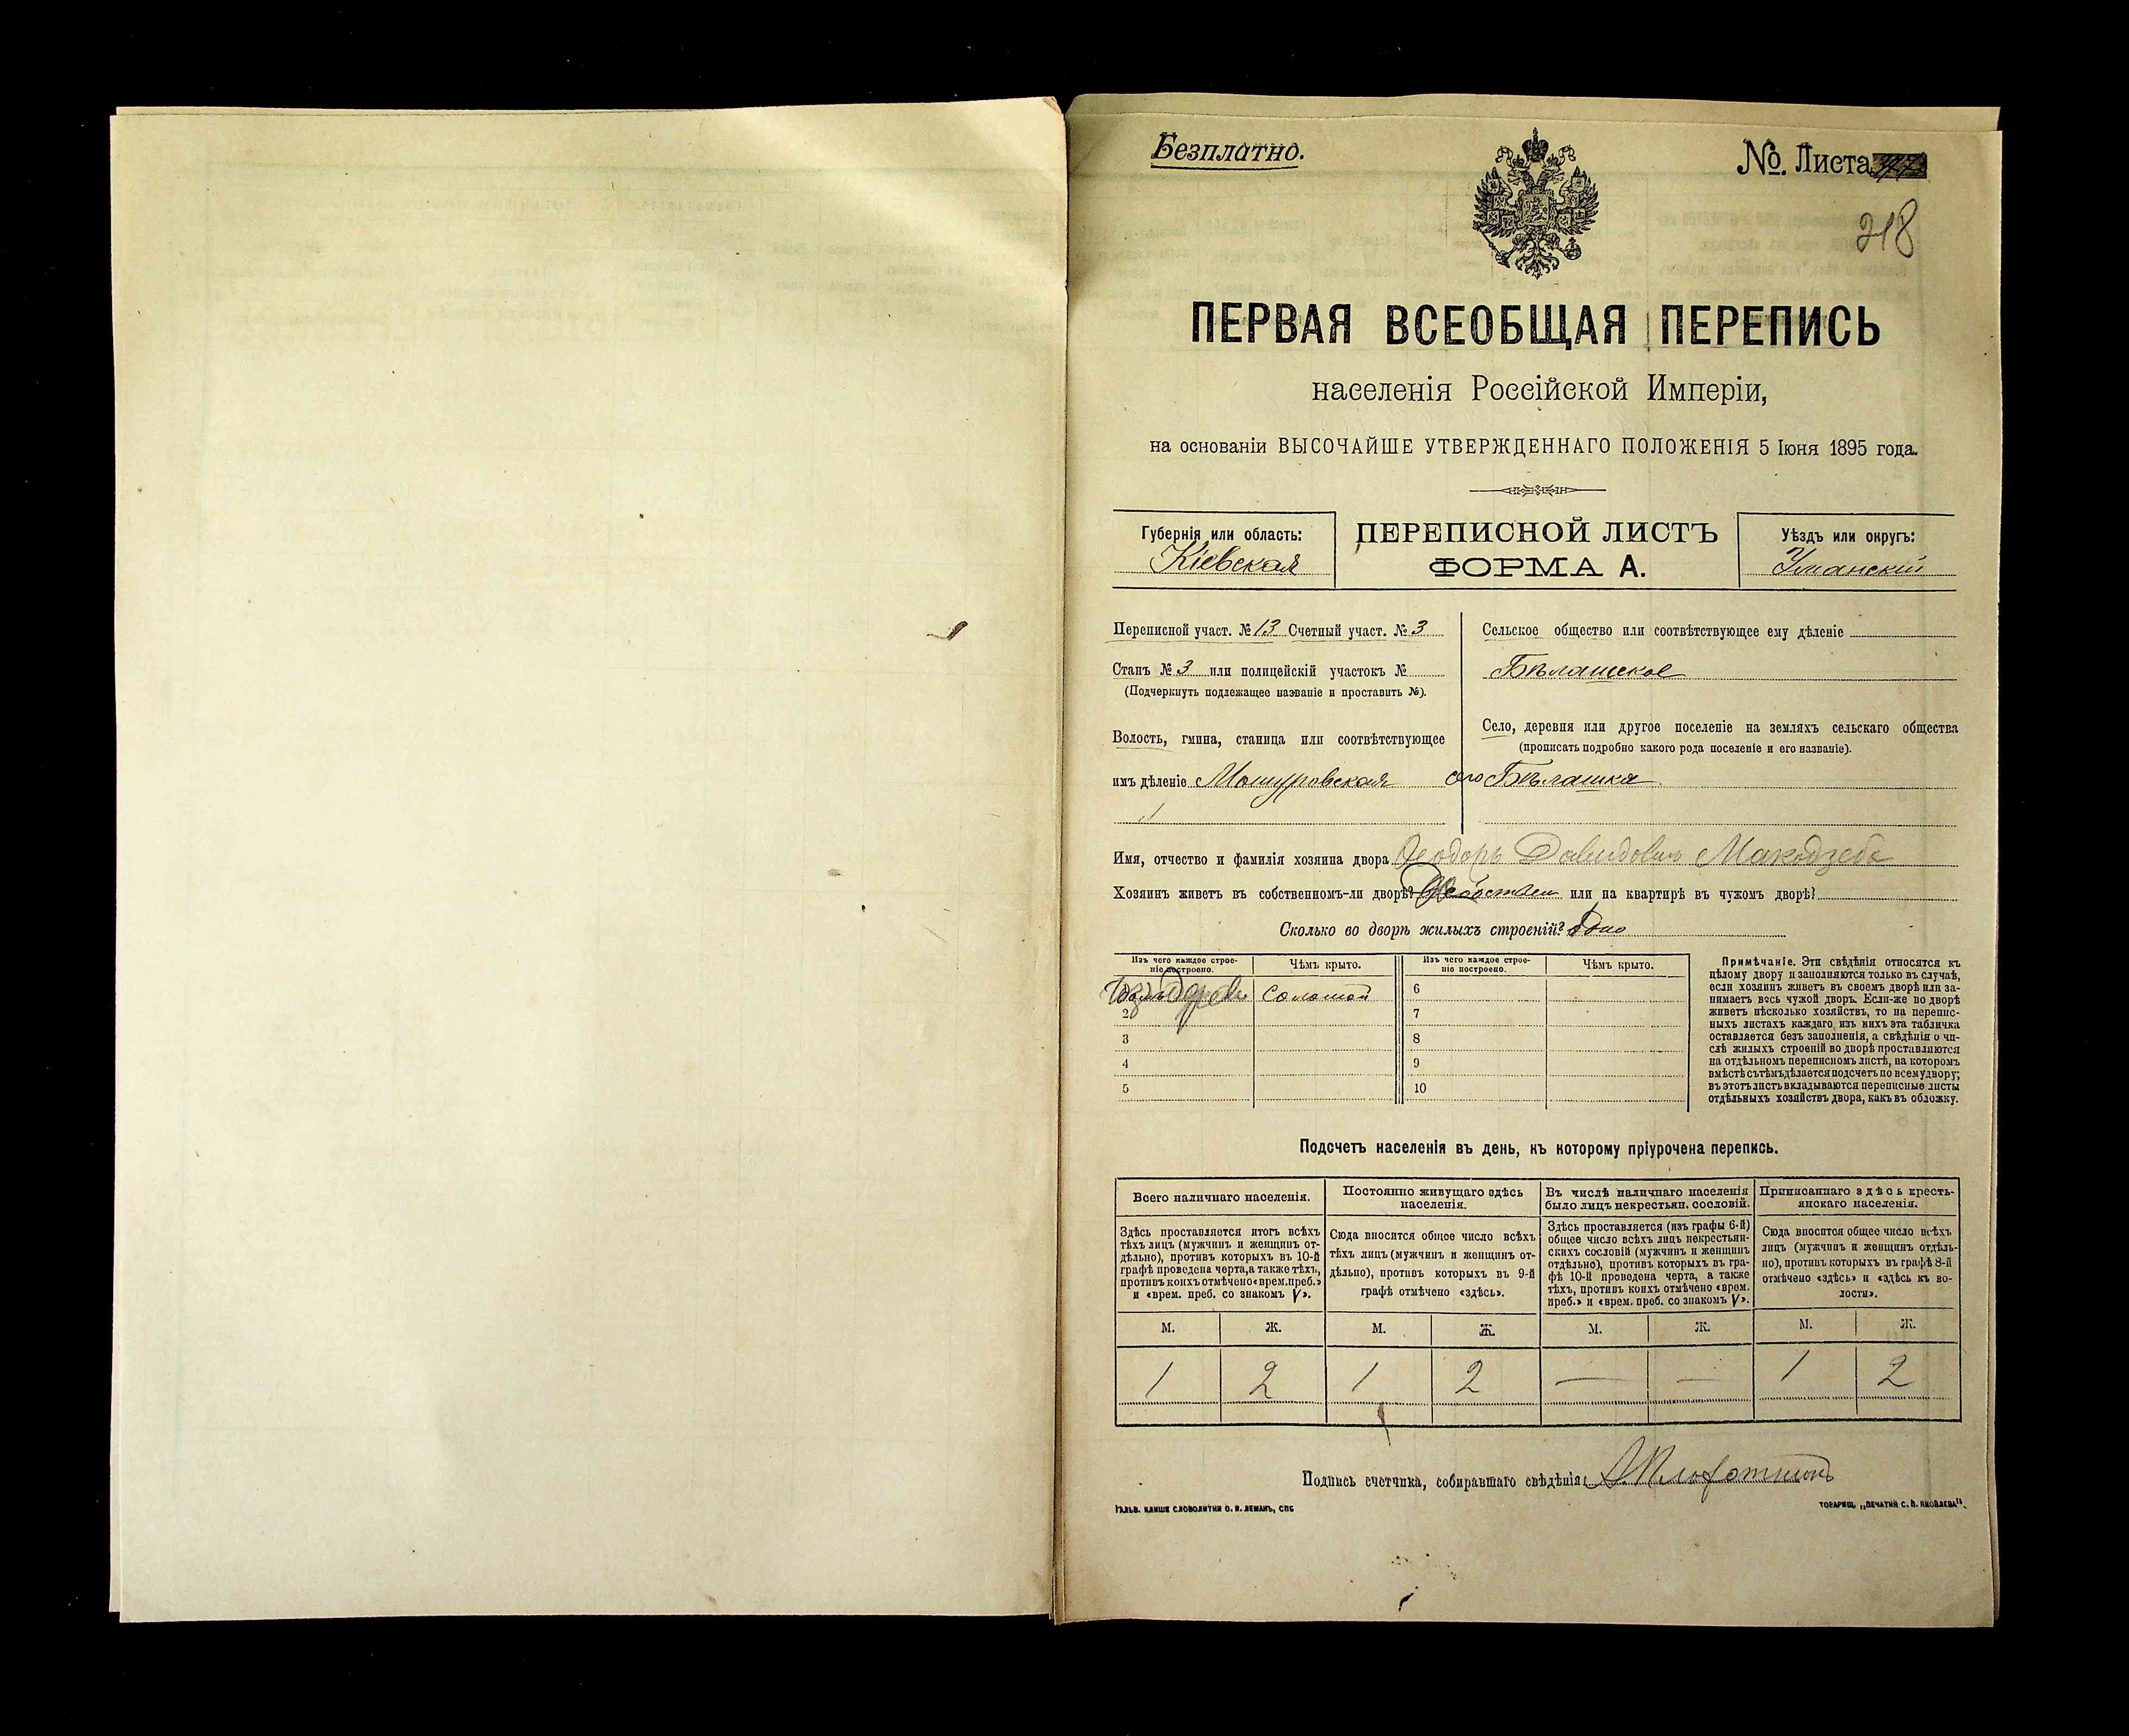 Безплатно.
№. Листа
218
ПЕРВАЯ ВСЕОБЩАЯ ПЕРЕПИСЬ
населенія Россійской Имперіи,
на основаніи ВЫСОЧАЙШЕ УТВЕРЖДЕННАГО ПОЛОЖЕНІЯ 5 Іюня 1895 года.
Губернія или область:
Кіевская
ПЕРЕПИСНОЙ ЛИСТЪ
ФОРМА А.
Уѣздъ или округъ:
Уманскій
Переписной участ. № 13 Счетный участ. № 3
Станъ № 3 или полицейскій участокъ №
(Подчеркнуть подлежащее названіе и проставить №).
Волость, гмина, станица или соотвѣтствующее
имъ дѣленіе Машуровская
Сельское общество или соотвѣтствующее ему дѣленіе
Бѣлашское
Село, деревня или другое поселеніе на земляхъ сельскаго общества
(прописать подробно какого рода поселеніе и его названіе).
Бѣлашка
Имя, отчество и фамилія хозяина двора Ѳеодоръ Давидовъ
Хозяинъ живетъ въ собственномъ-ли дворѣ? или на квартирѣ въ чужомъ дворѣ?
Сколько во дворѣ жилыхъ строеній? Одно
Изъ чего каждое строе-
ніе построено.
Чѣмъ крыто.
Соломой
2
3
4
5
Изъ чего каждое строе-
ніе построено.
Чѣмъ крыто.
6
7
8
9
10
Примѣчаніе. Эти свѣдѣнія относятся къ
цѣлому двору и заполняются только въ случаѣ,
если хозяинъ живетъ въ своемъ дворѣ или за-
нимаетъ весь чужой дворъ. Если-же во дворѣ
живетъ нѣсколько хозяйствъ, то на перепис-
ныхъ листахъ каждаго изъ нихъ эта табличка
оставляется безъ заполненія, а свѣдѣнія о чи-
слѣ жилыхъ строеній во дворѣ проставляются
на отдѣльномъ переписномъ листѣ, на которомъ
вмѣстѣ съ тѣмъ дѣлается подсчетъ по всему двору;
въ этотъ листъ вкладываются переписные листы
отдѣльныхъ хозяйствъ двора, какъ въ обложку.
Подсчетъ населенія въ день, къ которому пріурочена перепись.
Всего наличнаго населенія.
Здѣсь проставляется итогъ всѣхъ
тѣхъ лицъ (мужчинъ и женщинъ от-
дѣльно), противъ которыхъ въ 10-й
графѣ проведена черта, а также тѣхъ,
противъ коихъ отмѣчено «врем. преб.»
и «врем. преб. со знакомъ V».
М. Ж.
1 2
Постоянно живущаго здѣсь
населенія.
Сюда вносится общее число всѣхъ
тѣхъ лицъ (мужчинъ и женщинъ от-
дѣльно), противъ которыхъ въ 9-й
графѣ отмѣчено «здѣсь».
М. Ж.
1 2
Въ числѣ наличнаго населенія
было лицъ некрестьян. сословій.
Здѣсь проставляется (изъ графы 6-й)
общее число всѣхъ лицъ некрестьян-
скихъ сословій (мужчинъ и женщинъ
отдѣльно), противъ которыхъ въ гра-
фѣ 10-й проведена черта, а также
тѣхъ, противъ коихъ отмѣчено «врем.
преб.» и «врем. преб. со знакомъ V».
М. Ж.
— —
Приписаннаго здѣсь кресть-
янскаго населенія.
Сюда вносится общее число всѣхъ
лицъ (мужчинъ и женщинъ отдѣль-
но), противъ которыхъ въ графѣ 8-й
отмѣчено «здѣсь» и «здѣсь въ во-
лости».
М. Ж.
1 2
Подпись счетчика, собиравшаго свѣдѣнія:
ГАЛЬВ. КЛИШЕ СЛОВОЛИТНИ О. И. ЛЕМАНЪ, СПБ
ТОВАРИЩ. „ПЕЧАТНЯ С. П. ЯКОВЛЕВА".